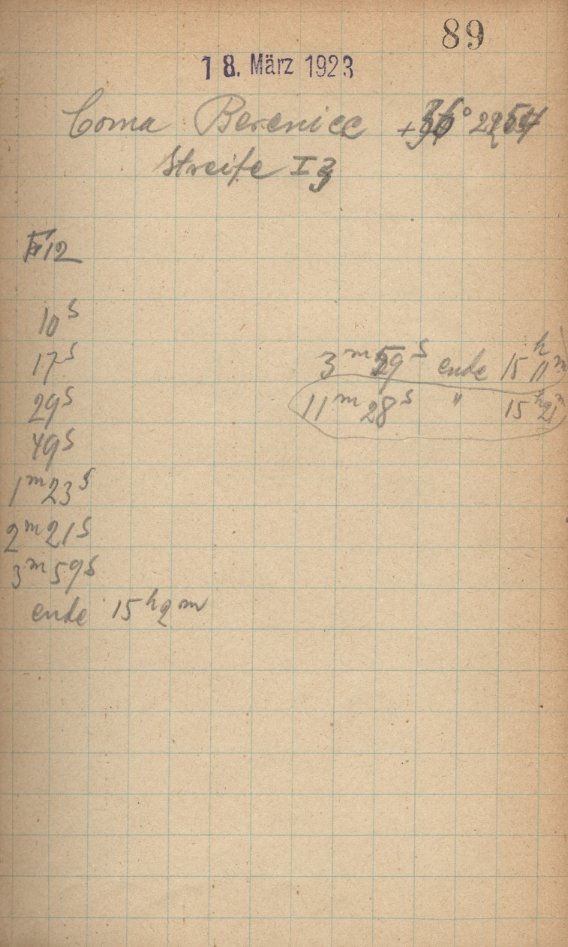 89
18. März 1923
Coma Berenice
Streife I3
F12
10s
17s
29s
49s
1m23s
2m21s
3m59s
ende 15h2m
3m59s ende 15h11m
11m28s " 15h21m